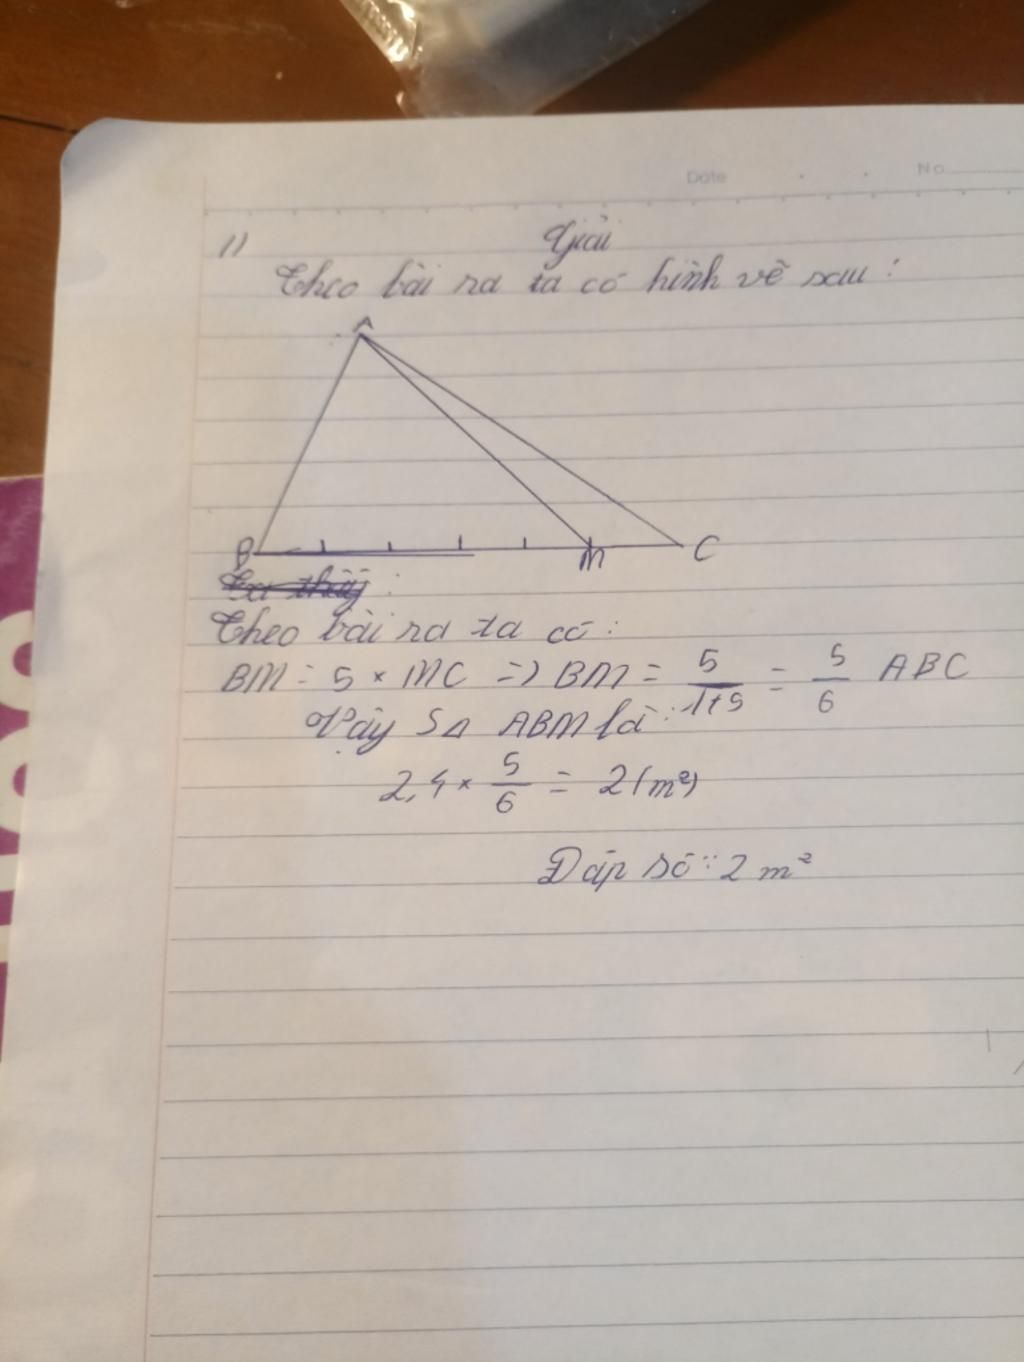 Date . . No
1) Giải
Theo bài ra ta có hình vẽ sau:
A
B M C
Theo bài ra ta có:
BM = 5 × MC => BM = 5/1+5 = 5/6 ABC
Vậy S△ ABM là:
2,4 × 5/6 = 2 (m²)
Đáp số: 2 m²